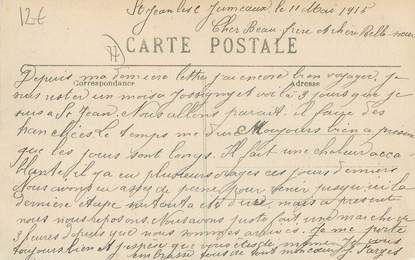 12€
St Jean les 2 Jumeaux, le 11 Mai 1915
Cher Beau-frère et chère Belle-sœur
CARTE POSTALE
Correspondance
Adresse
Depuis ma dernière lettre j'ai encore bien voyager. Je
suis rester un mois a Jossigny et voilà 3 jours que je
suis a St Jean. Nous allons parait il faire des
tranchées le temps me dure toujours bien a présent
que les jours sont longs. Il fait une chaleur acca
blante, il y a eu plusieurs orages ces jours derniers
Nous avons eu assez de peine pour venir jusqu'ici la
dernière étape surtout a été dure, mais a présent
nous nous reposons. Nous avons juste fait une marche de
3 heures depuis que nous sommes arrivés. Je me porte
toujours bien et j'espère que vous êtes de même. Je vous
embrasse tous de tout mon cœur J.